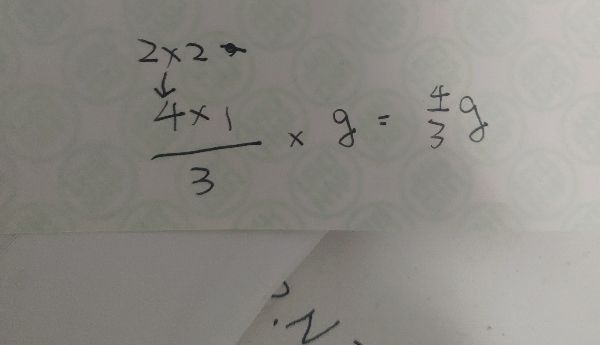 2×2
↓
4×1
3 × g = 4/3 g